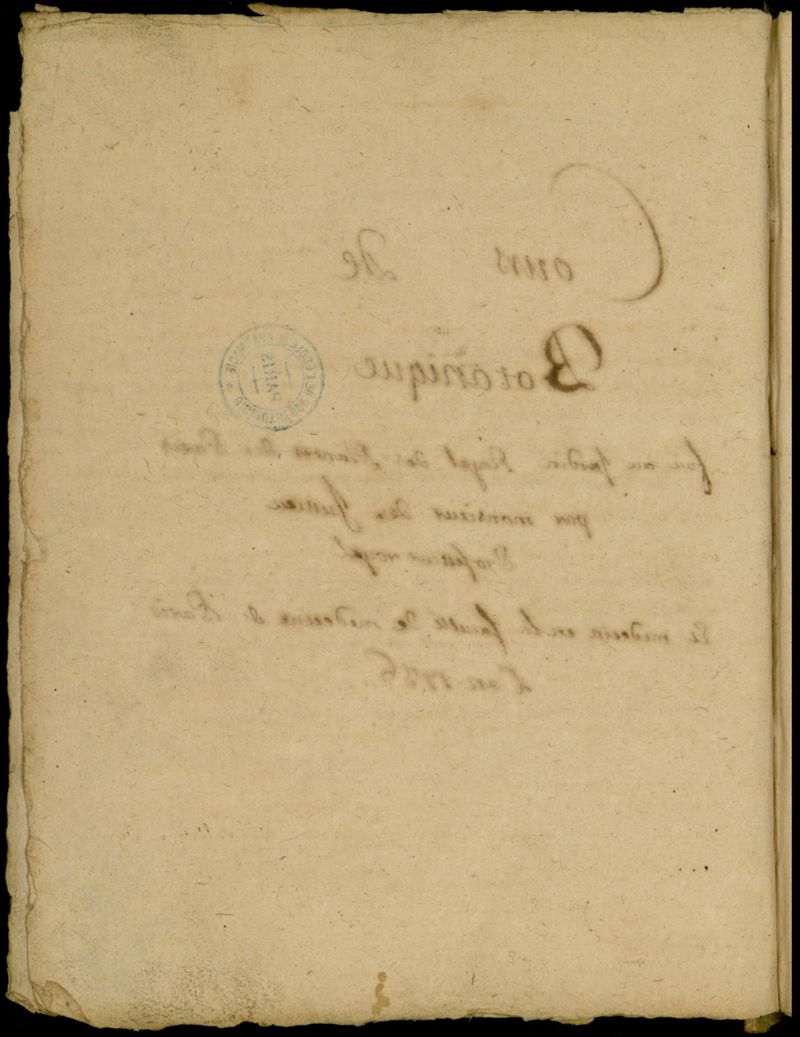 Cours de
Botanique
fait au Jardin Royal des Plantes de Paris
par monsieur de Jussieu
Professeur royal
de medecin en la faculté de medecine de Paris
L'an
PARIS